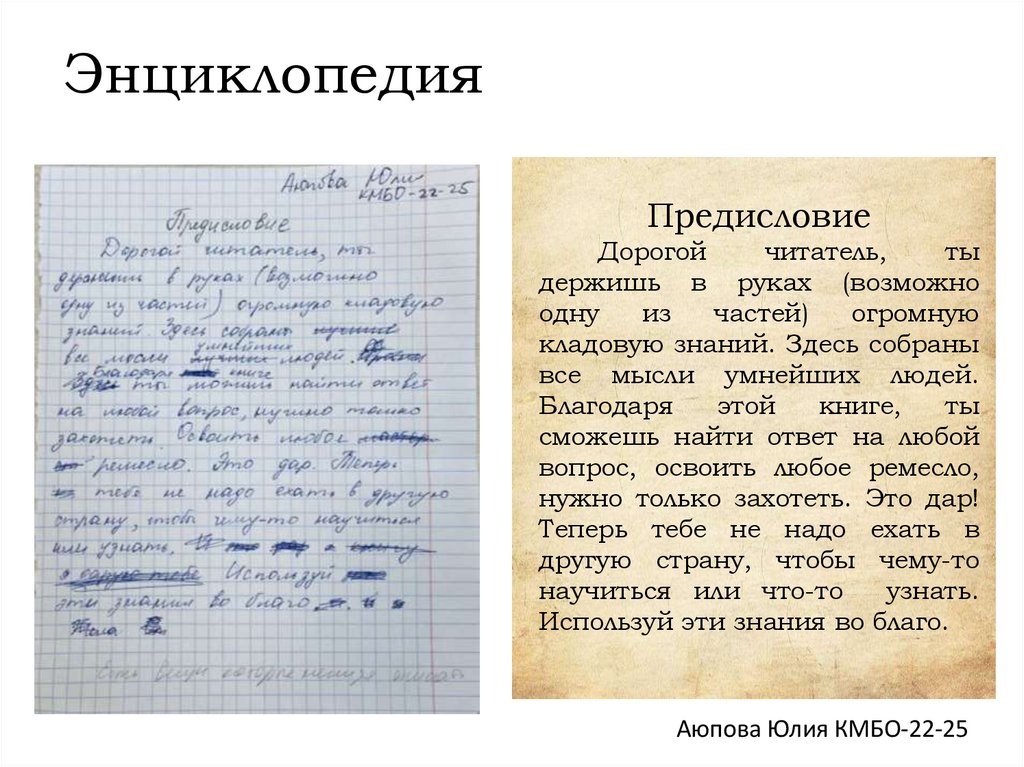 Энциклопедия
Аюпова Юлия
КМБО-22-25
Предисловие
Дорогой читатель, ты
держишь в руках (возможно
одну из частей) огромную кладовую
знаний. Здесь собраны лучшие
умнейших
все мысли лучших людей.
Благодаря книге
Здесь ты можешь найти ответ
на любой вопрос, нужно только
захотеть. Освоить любое
ремесло. Это дар. Теперь
тебе не надо ехать в другую
страну, чтобы чему-то научиться
или узнать. И я книгу
я дарую тебе Используй
эти знания во благо.
Есть вещи которые нельзя описать
Предисловие
Дорогой читатель, ты
держишь в руках (возможно
одну из частей) огромную
кладовую знаний. Здесь собраны
все мысли умнейших людей.
Благодаря этой книге, ты
сможешь найти ответ на любой
вопрос, освоить любое ремесло,
нужно только захотеть. Это дар!
Теперь тебе не надо ехать в
другую страну, чтобы чему-то
научиться или что-то узнать.
Используй эти знания во благо.
Аюпова Юлия КМБО-22-25